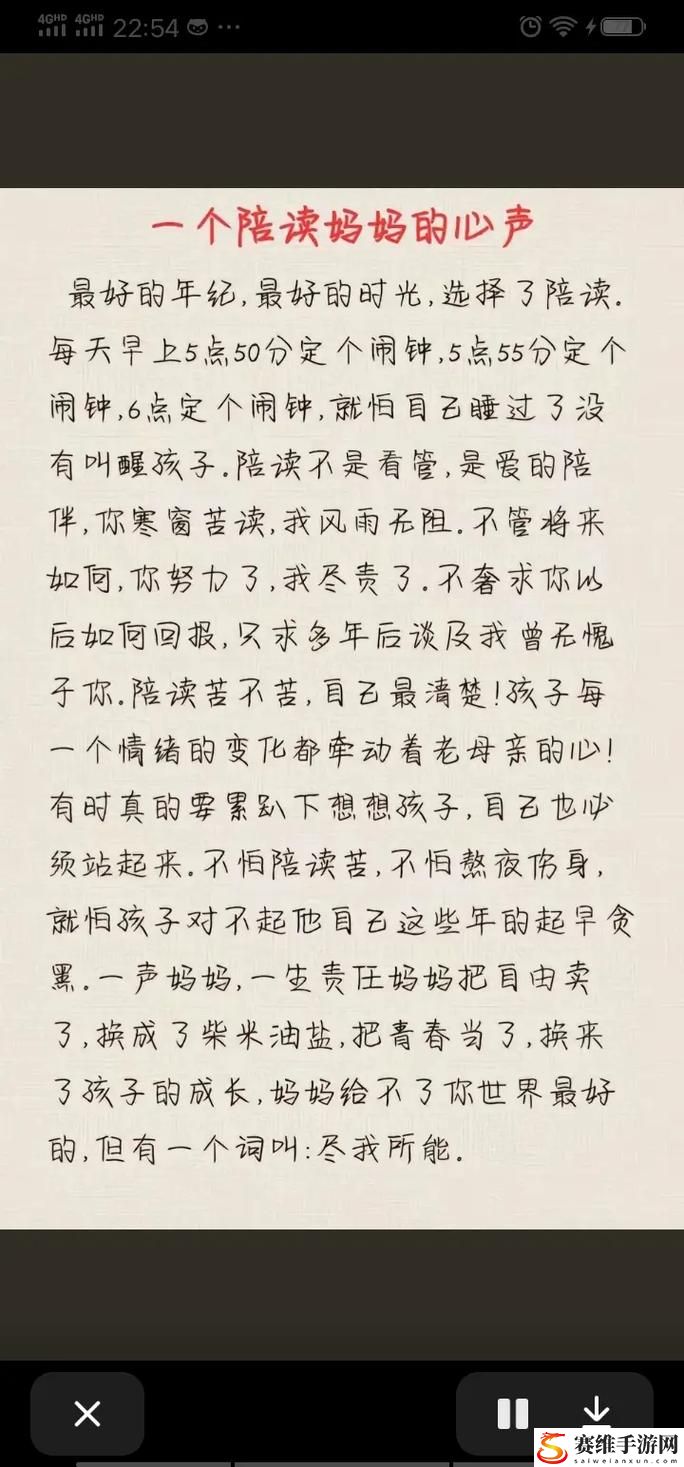 4GHD 4GHD 22:54 ...
一个陪读妈妈的心声
最好的年纪,最好的时光,选择了陪读.
每天早上5点50分定个闹钟,5点55分定个
闹钟,6点定个闹钟,就怕自己睡过了没
有叫醒孩子.陪读不是看管,是爱的陪
伴,你寒窗苦读,我风雨无阻.不管将来
如何,你努力了,我尽责了.不奢求你以
后如何回报,只求多年后谈及我曾无愧
于你.陪读苦不苦,自己最清楚!孩子每
一个情绪的变化都牵动着老母亲的心!
有时真的要累趴下想想孩子,自己也必
须站起来.不怕陪读苦,不怕熬夜伤身,
就怕孩子对不起他自己这些年的起早贪
黑.一声妈妈,一生责任妈妈把自由卖
了,换成了柴米油盐,把青春当了,换来
了孩子的成长,妈妈给不了你世界最好
的,但有一个词叫:尽我所能.
赛维手游网
saiweianxun.com